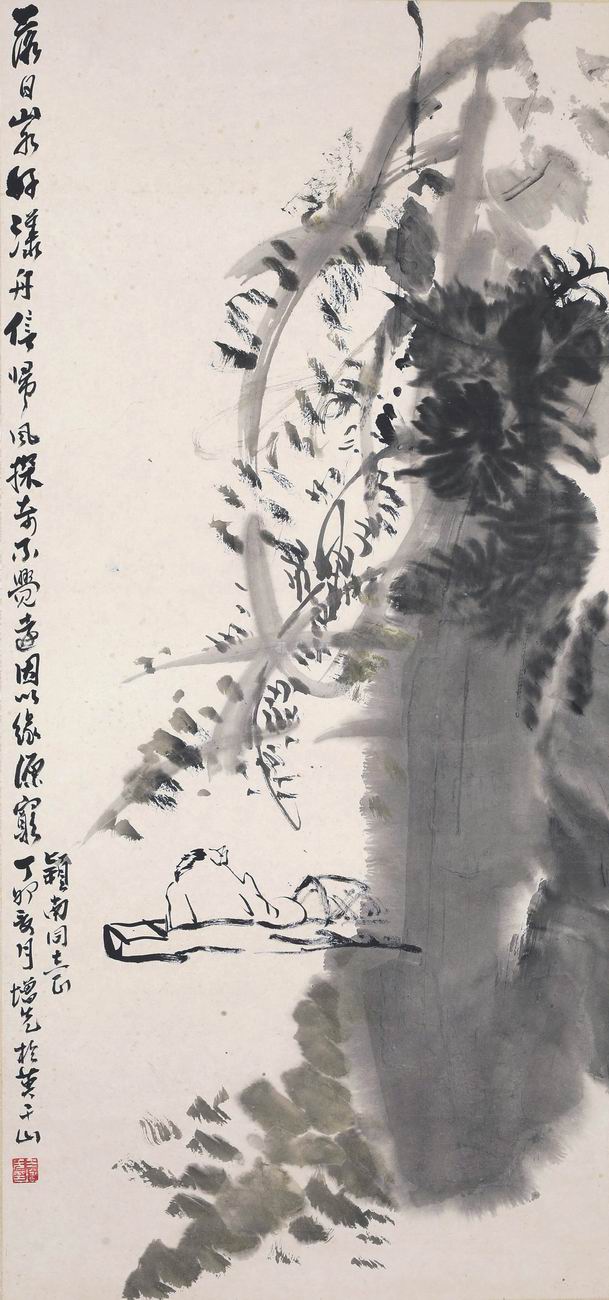 落日山水好漾舟信歸風探奇不覺遠因以緣源窮
穎南同志正
丁卯夏月增先於莫干山